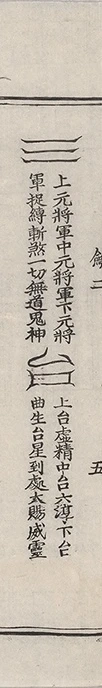 上元將軍中元將軍下元將
軍捉縛斬煞一切無道鬼神
上台虛精中台六淳下台
曲生台星到處大賜威靈
五